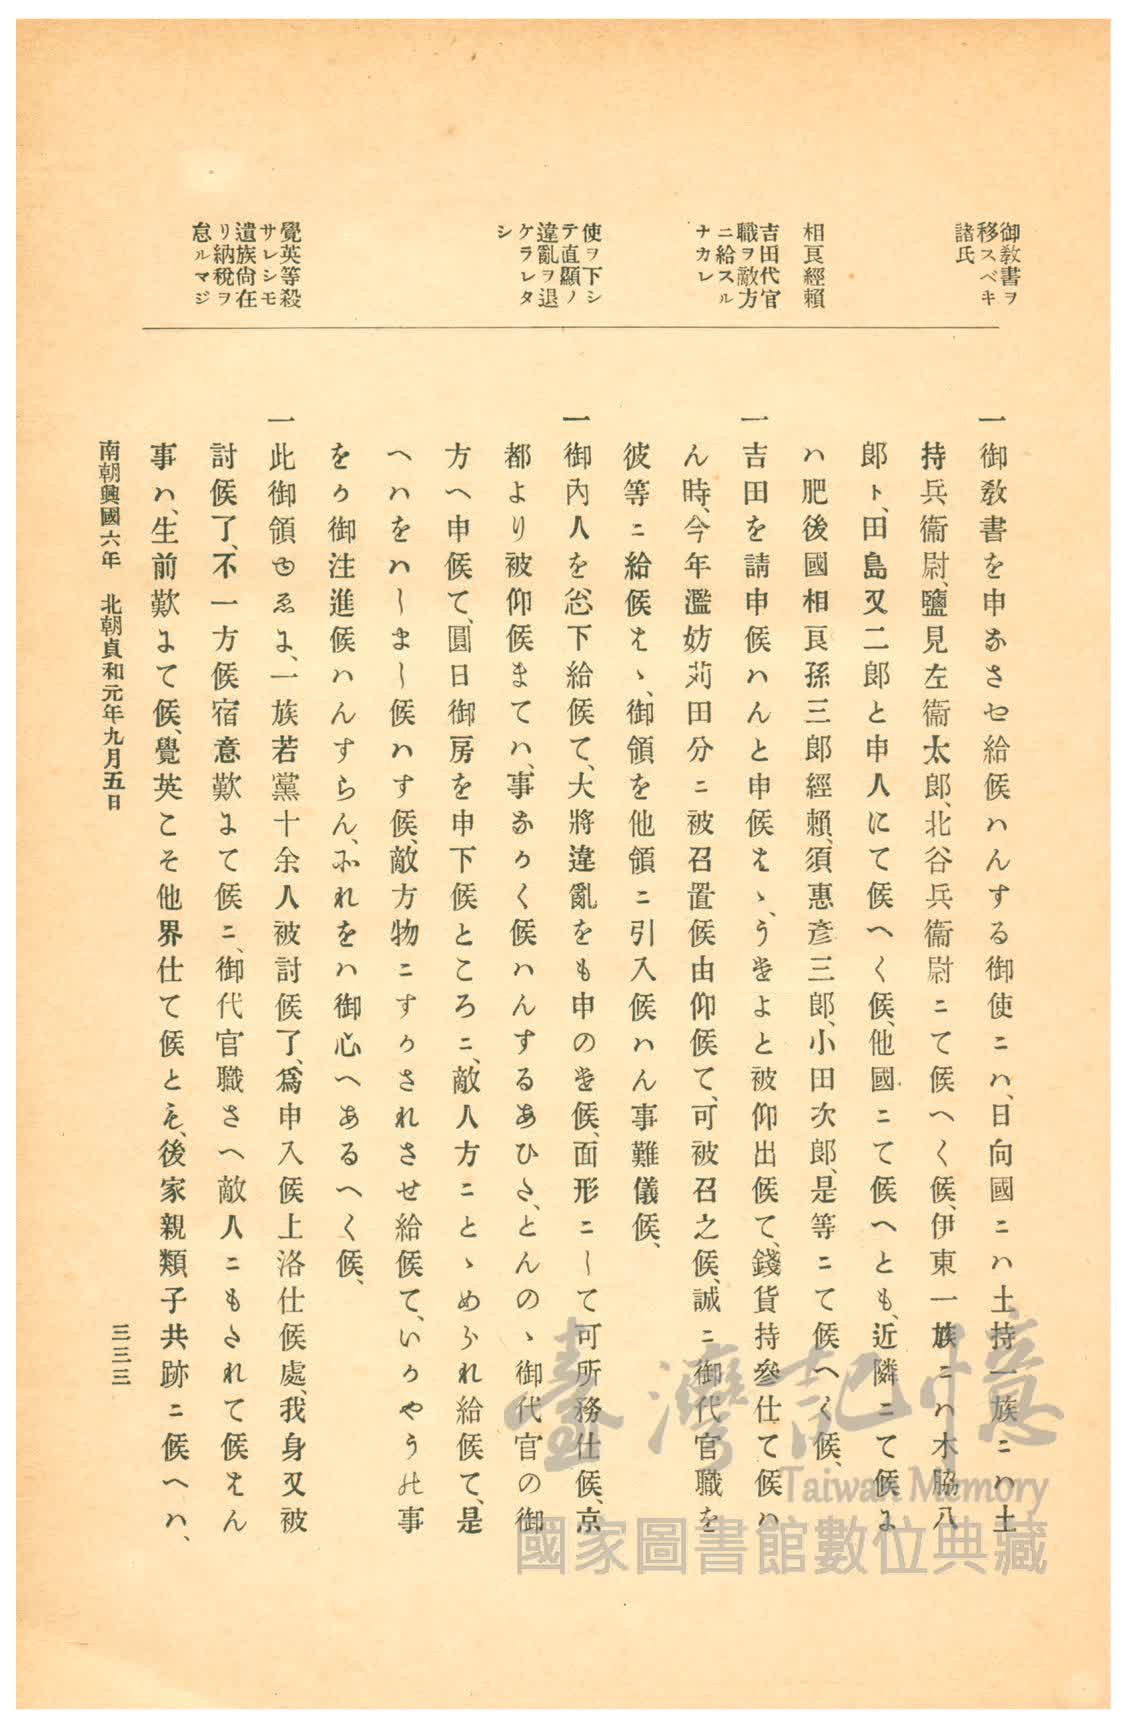 御教書ヲ
移スベキ
諸氏
相良經賴
吉田代官
職ヲ敵方
ニ給スル
ナカレ
使ヲ下シ
テ直顯ノ
違亂ヲ退
ケラレタ
シ
覺英等殺
サレシモ
遺族尙在
リ納稅ヲ
怠ルマジ
一御敎書を申なさせ給候ハんする御使ニハ、日向國ニハ土持一族ニハ土
持兵衞尉、鹽見左衞太郎、北谷兵衞尉ニて候へく候、伊東一族ニハ木脇八
郎ト、田島又二郎と申人にて候へく候、他國ニて候へとも、近隣ニて候よ
ハ肥後國相良孫三郎經賴、須惠彥三郎、小田次郎、是等ニて候へく候、
一吉田を請申候ハんと申候はゝ、うせよと被仰出候て、錢貨持參仕て候ハ
ん時、今年濫妨苅田分ニ被召置候由仰候て、可被召之候、誠ニ御代官職を
彼等ニ給候はゝ、御領を他領ニ引入候ハん事難儀候、
一御內人を忩下給候て、大將違亂をも申のせ候、面形ニして可所務仕候、京
都より被仰候まてハ、事なかく候ハんするあひた、とんのゝ御代官の御
方へ申候て、圓日御房を申下候ところニ、敵人方ニとゝめられ給候て、是
へハをハしまし候ハす候、敵方物ニすかされさせ給候て、いかやうの事
をか御注進候ハんすらん、それをハ御心へあるへく候、
一此御領ゆゑに、一族若黨十余人被討候了、爲申入候上洛仕候處、我身又被
討候了、不一方候宿意歎よて候ニ、御代官職さへ敵人ニもされて候はん
事ハ、生前歎よて候、覺英こそ他界仕て候とも、後家親類子共跡ニ候へハ、
南朝興國六年　北朝貞和元年九月五日
三三三
臺灣記憶
Taiwan Memory
國家圖書館數位典藏